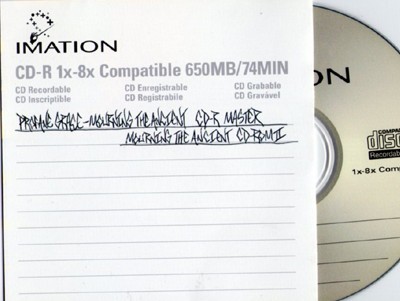 IMATION
CD-R 1x-8x Compatible 650MB/74MIN
CD Recordable CD Enregistrable CD Grabable
CD Inscriptible CD Registrabile CD Gravável
PROFANE GRACE - MOURNING THE ANCIENT CD-R MASTER
MOURNING THE ANCIENT CD-ROM II
ON
COMPAC
disc
Recordable
1x-8x Comp